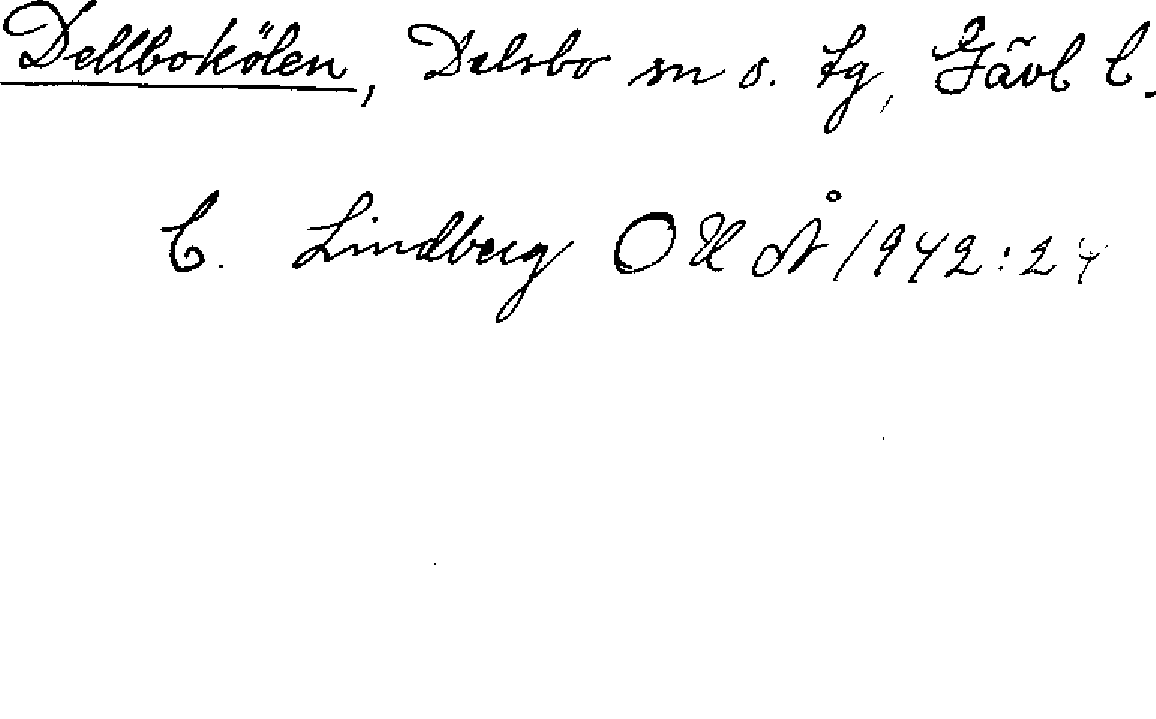 Dellbokölen, Delsbo sn o. tg, Gävl l.
C. Lindberg OUÅ 1942:24